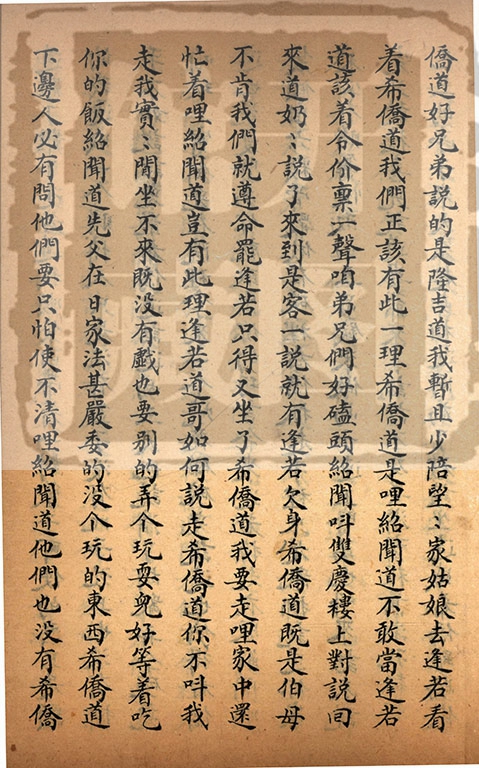 僑道好兄弟說的是隆吉道我暫且少陪望〻家姑娘去逢若看
着希僑道我們正該有此一理希僑道是哩紹聞道不敢當逢若
道該着令价稟一聲咱弟兄們好磕頭紹聞呌雙慶樓上對說回
來道奶〻說了來到是客一說就有逢若欠身希僑道既是伯母
不肯我們就遵命罷逢若只得又坐了希僑道我要走哩家中還
忙着哩紹聞道豈有此理逢若道哥如何說走希僑道你不呌我
走我實〻閒坐不來既没有戲也要別的弄个玩耍兒好等着吃
你的飯紹聞道先父在日家法甚嚴委的没个玩的東西希僑道
下邊人必有問他們要只怕使不清哩紹聞道他們也没有希僑